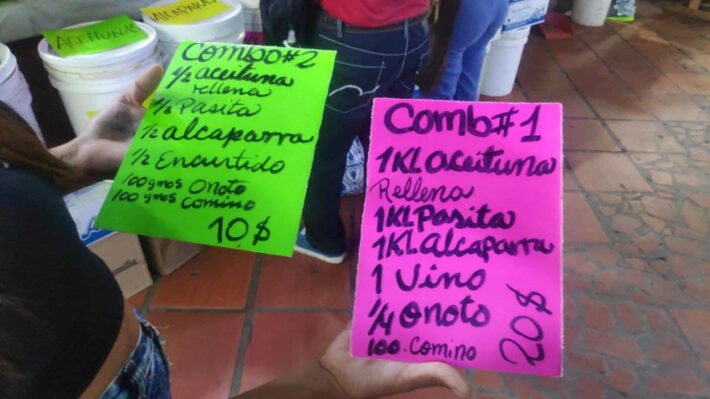 ACEITUNAS
ALCAPARAS
Combo#2
1/2 aceituna
rellena
1/2 Pasita
1/2 alcaparra
1/2 Encurtido
100gmos Onoto
100gmos comino
10$
Comb#1
1KL aceituna
Rellena
1KL Pasita
1KL alcaparra
1 Vino
1/4 Onoto
100. Comino
20$